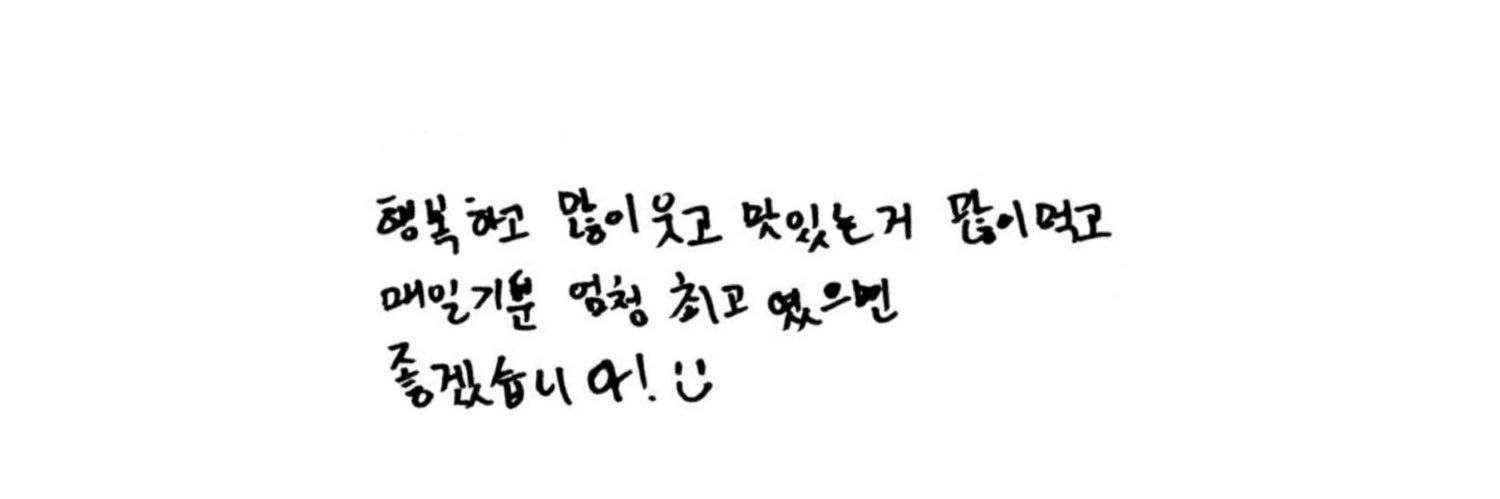 행복하고 많이웃고 맛있는거 많이먹고
매일기분 엄청 최고였으면
좋겠습니다! :)